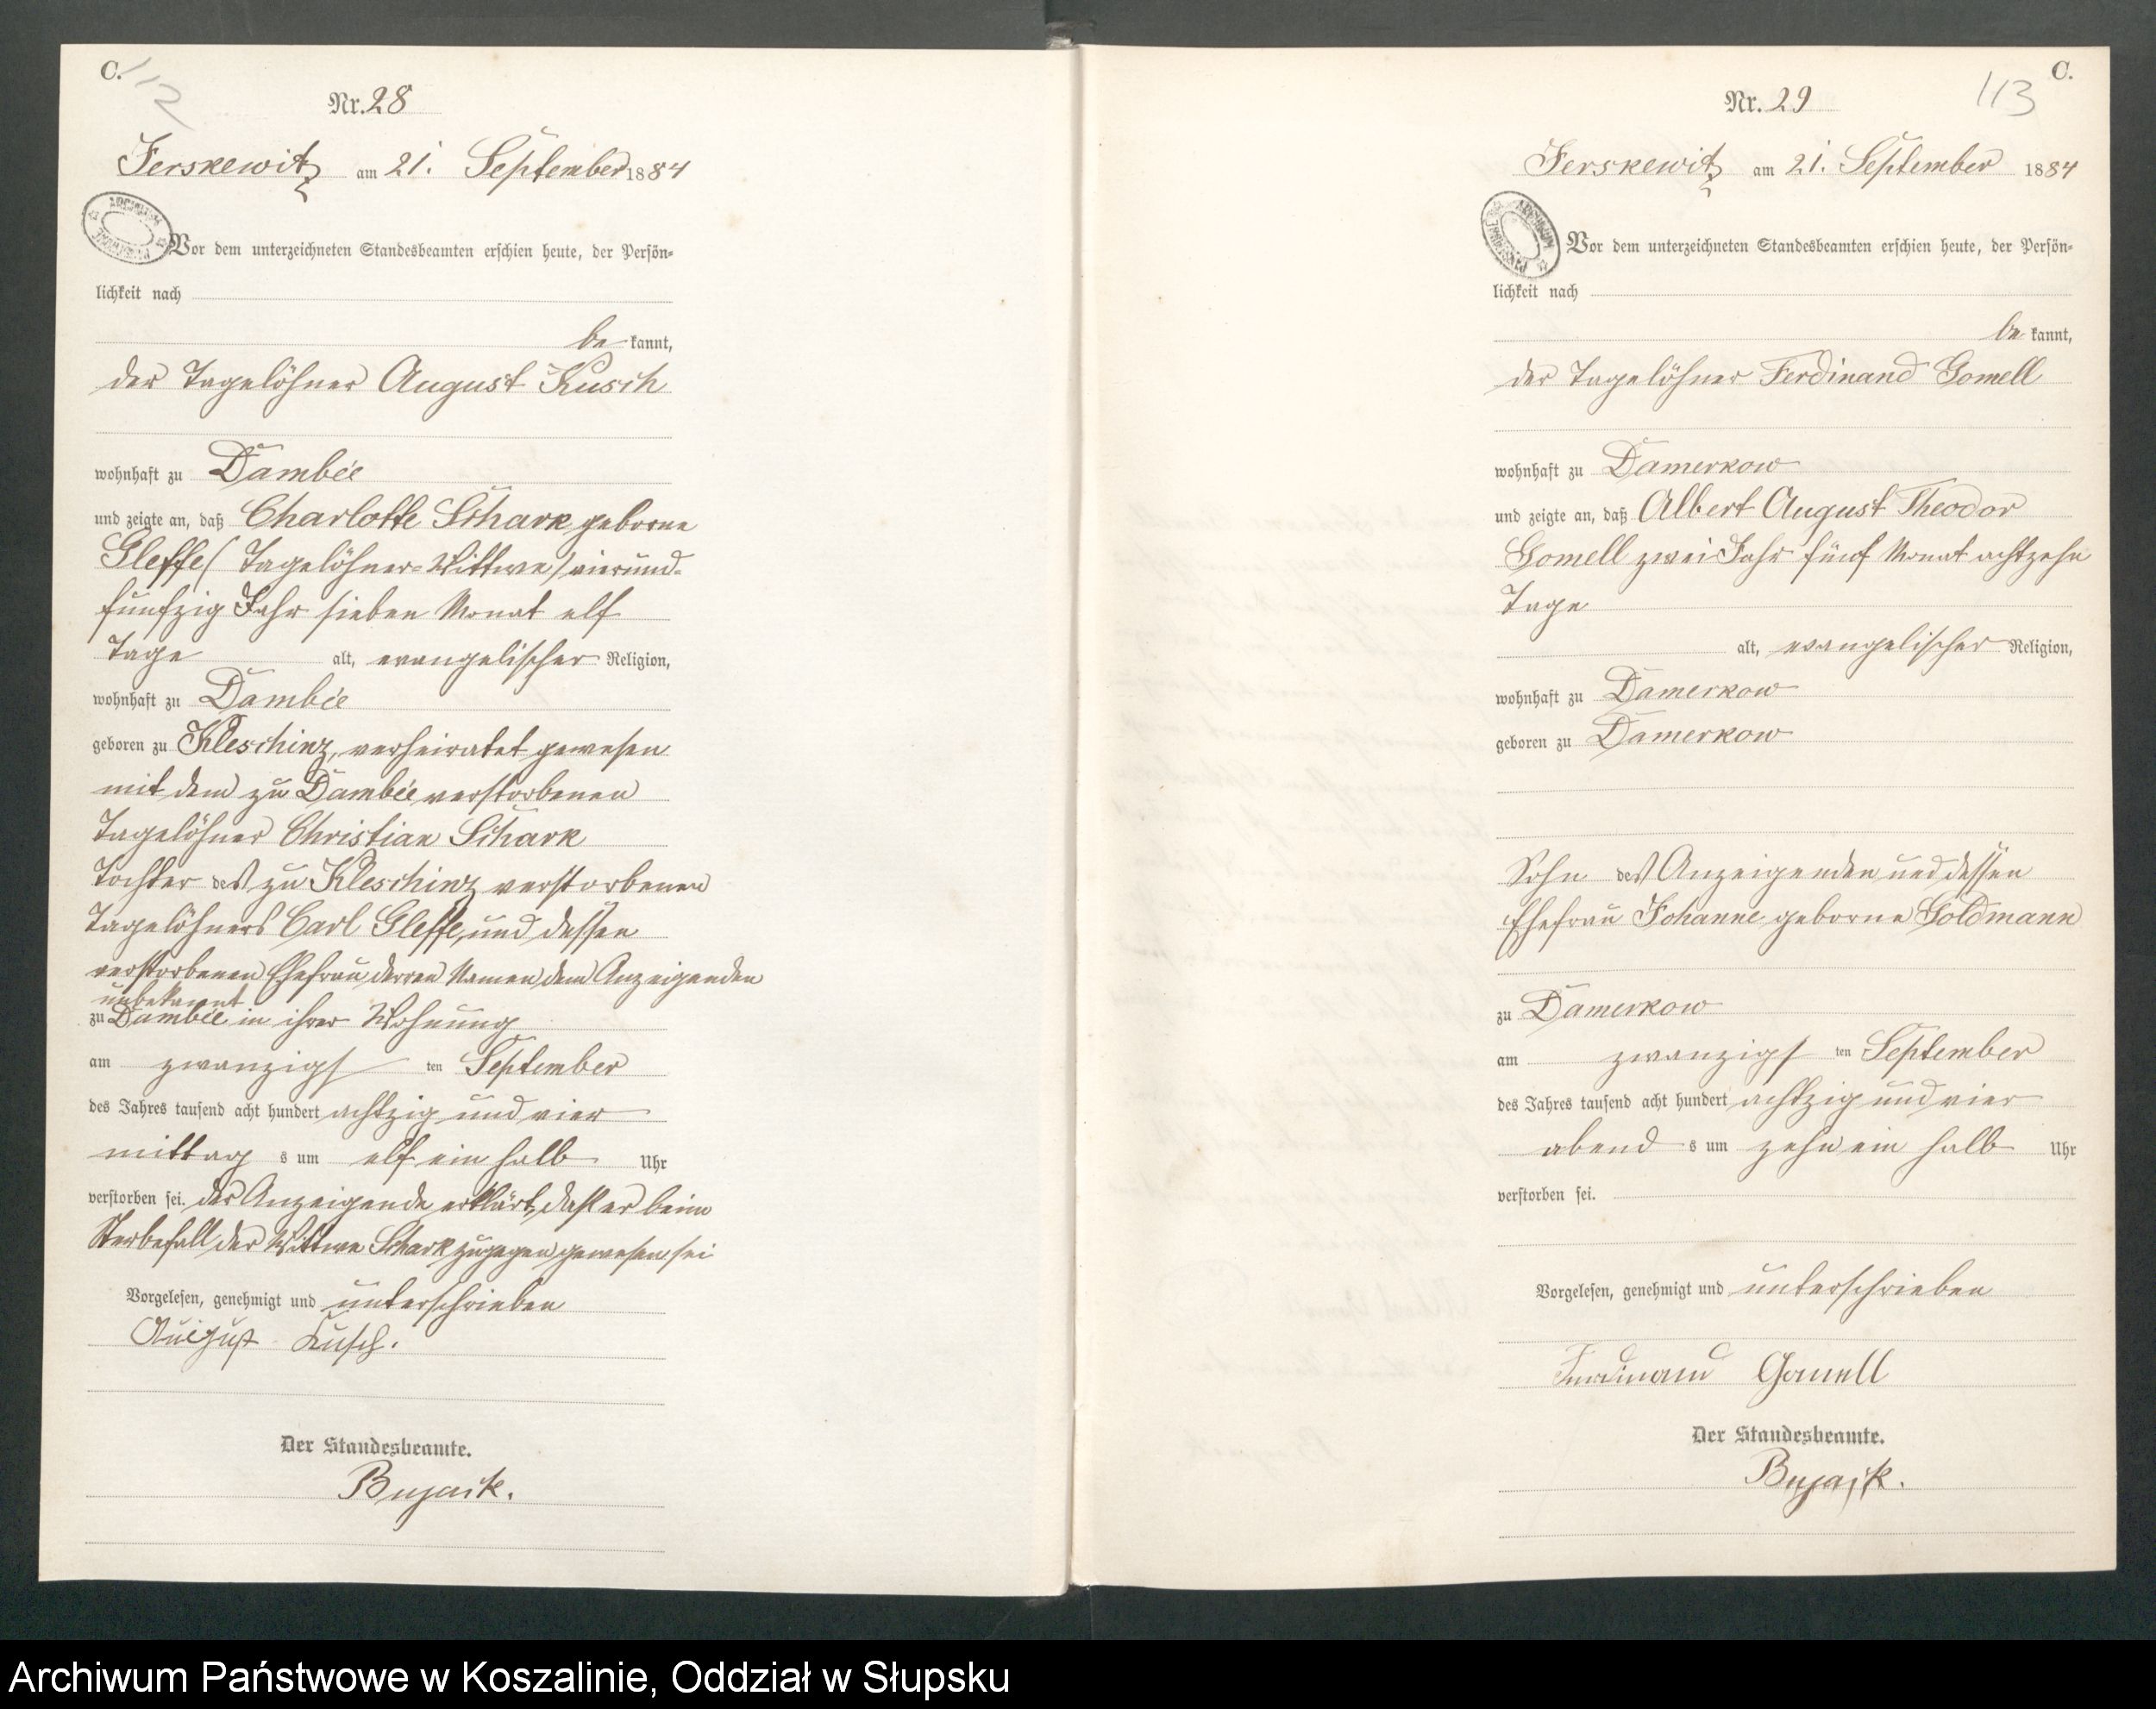 C.
112
Nr. 28
Jerskewitz am 21. September 1884
Vor dem unterzeichneten Standesbeamten erschien heute, der Persön-
lichkeit nach
be kannt,
der Tagelöhner August Kusch
wohnhaft zu Dambée
und zeigte an, daß Charlotte Schark geborne
Gleffe (Tagelöhner-Wittwe) vierund-
fünfzig Jahr sieben Monat elf
Tage alt, evangelischer Religion,
wohnhaft zu Dambée
geboren zu Kleschinz, verheiratet gewesen
mit dem zu Dambée verstorbenen
Tagelöhner Christian Schark
Tochter des zu Kleschinz verstorbenen
Tagelöhners Carl Gleffe, und dessen
verstorbenen Ehefrau, derren Namen dem Anzeigenden
unbekannt
zu Dambée in ihrer Wohnung
am zwanzigs ten September
des Jahres tausend acht hundert achtzig und vier
mittag s um elf ein halb Uhr
verstorben sei. der Anzeigende erklärt, daß er beim
Sterbefall der Wittwe Schark zugegen gewesen sei
Vorgelesen, genehmigt und unterschrieben
August Kusch.
Der Standesbeamte.
Bujack.
C.
113
Nr. 29
Jerskewitz am 21. September 1884
Vor dem unterzeichneten Standesbeamten erschien heute, der Persön-
lichkeit nach
be kannt,
der Tagelöhner Ferdinand Gomell
wohnhaft zu Damerkow
und zeigte an, daß Albert August Theodor
Gomell zwei Jahr fünf Monat achtzehn
Tage
alt, evangelischer Religion,
wohnhaft zu Damerkow
geboren zu Damerkow
Sohn des Anzeigenden und dessen
Ehefrau Johanne geborne Goldmann
zu Damerkow
am zwanzigs ten September
des Jahres tausend acht hundert achtzig und vier
abend s um zehn ein halb Uhr
verstorben sei.
Vorgelesen, genehmigt und unterschrieben
Ferdinand Gomell
Der Standesbeamte.
Bujack.
Archiwum Państwowe w Koszalinie, Oddział w Słupsku